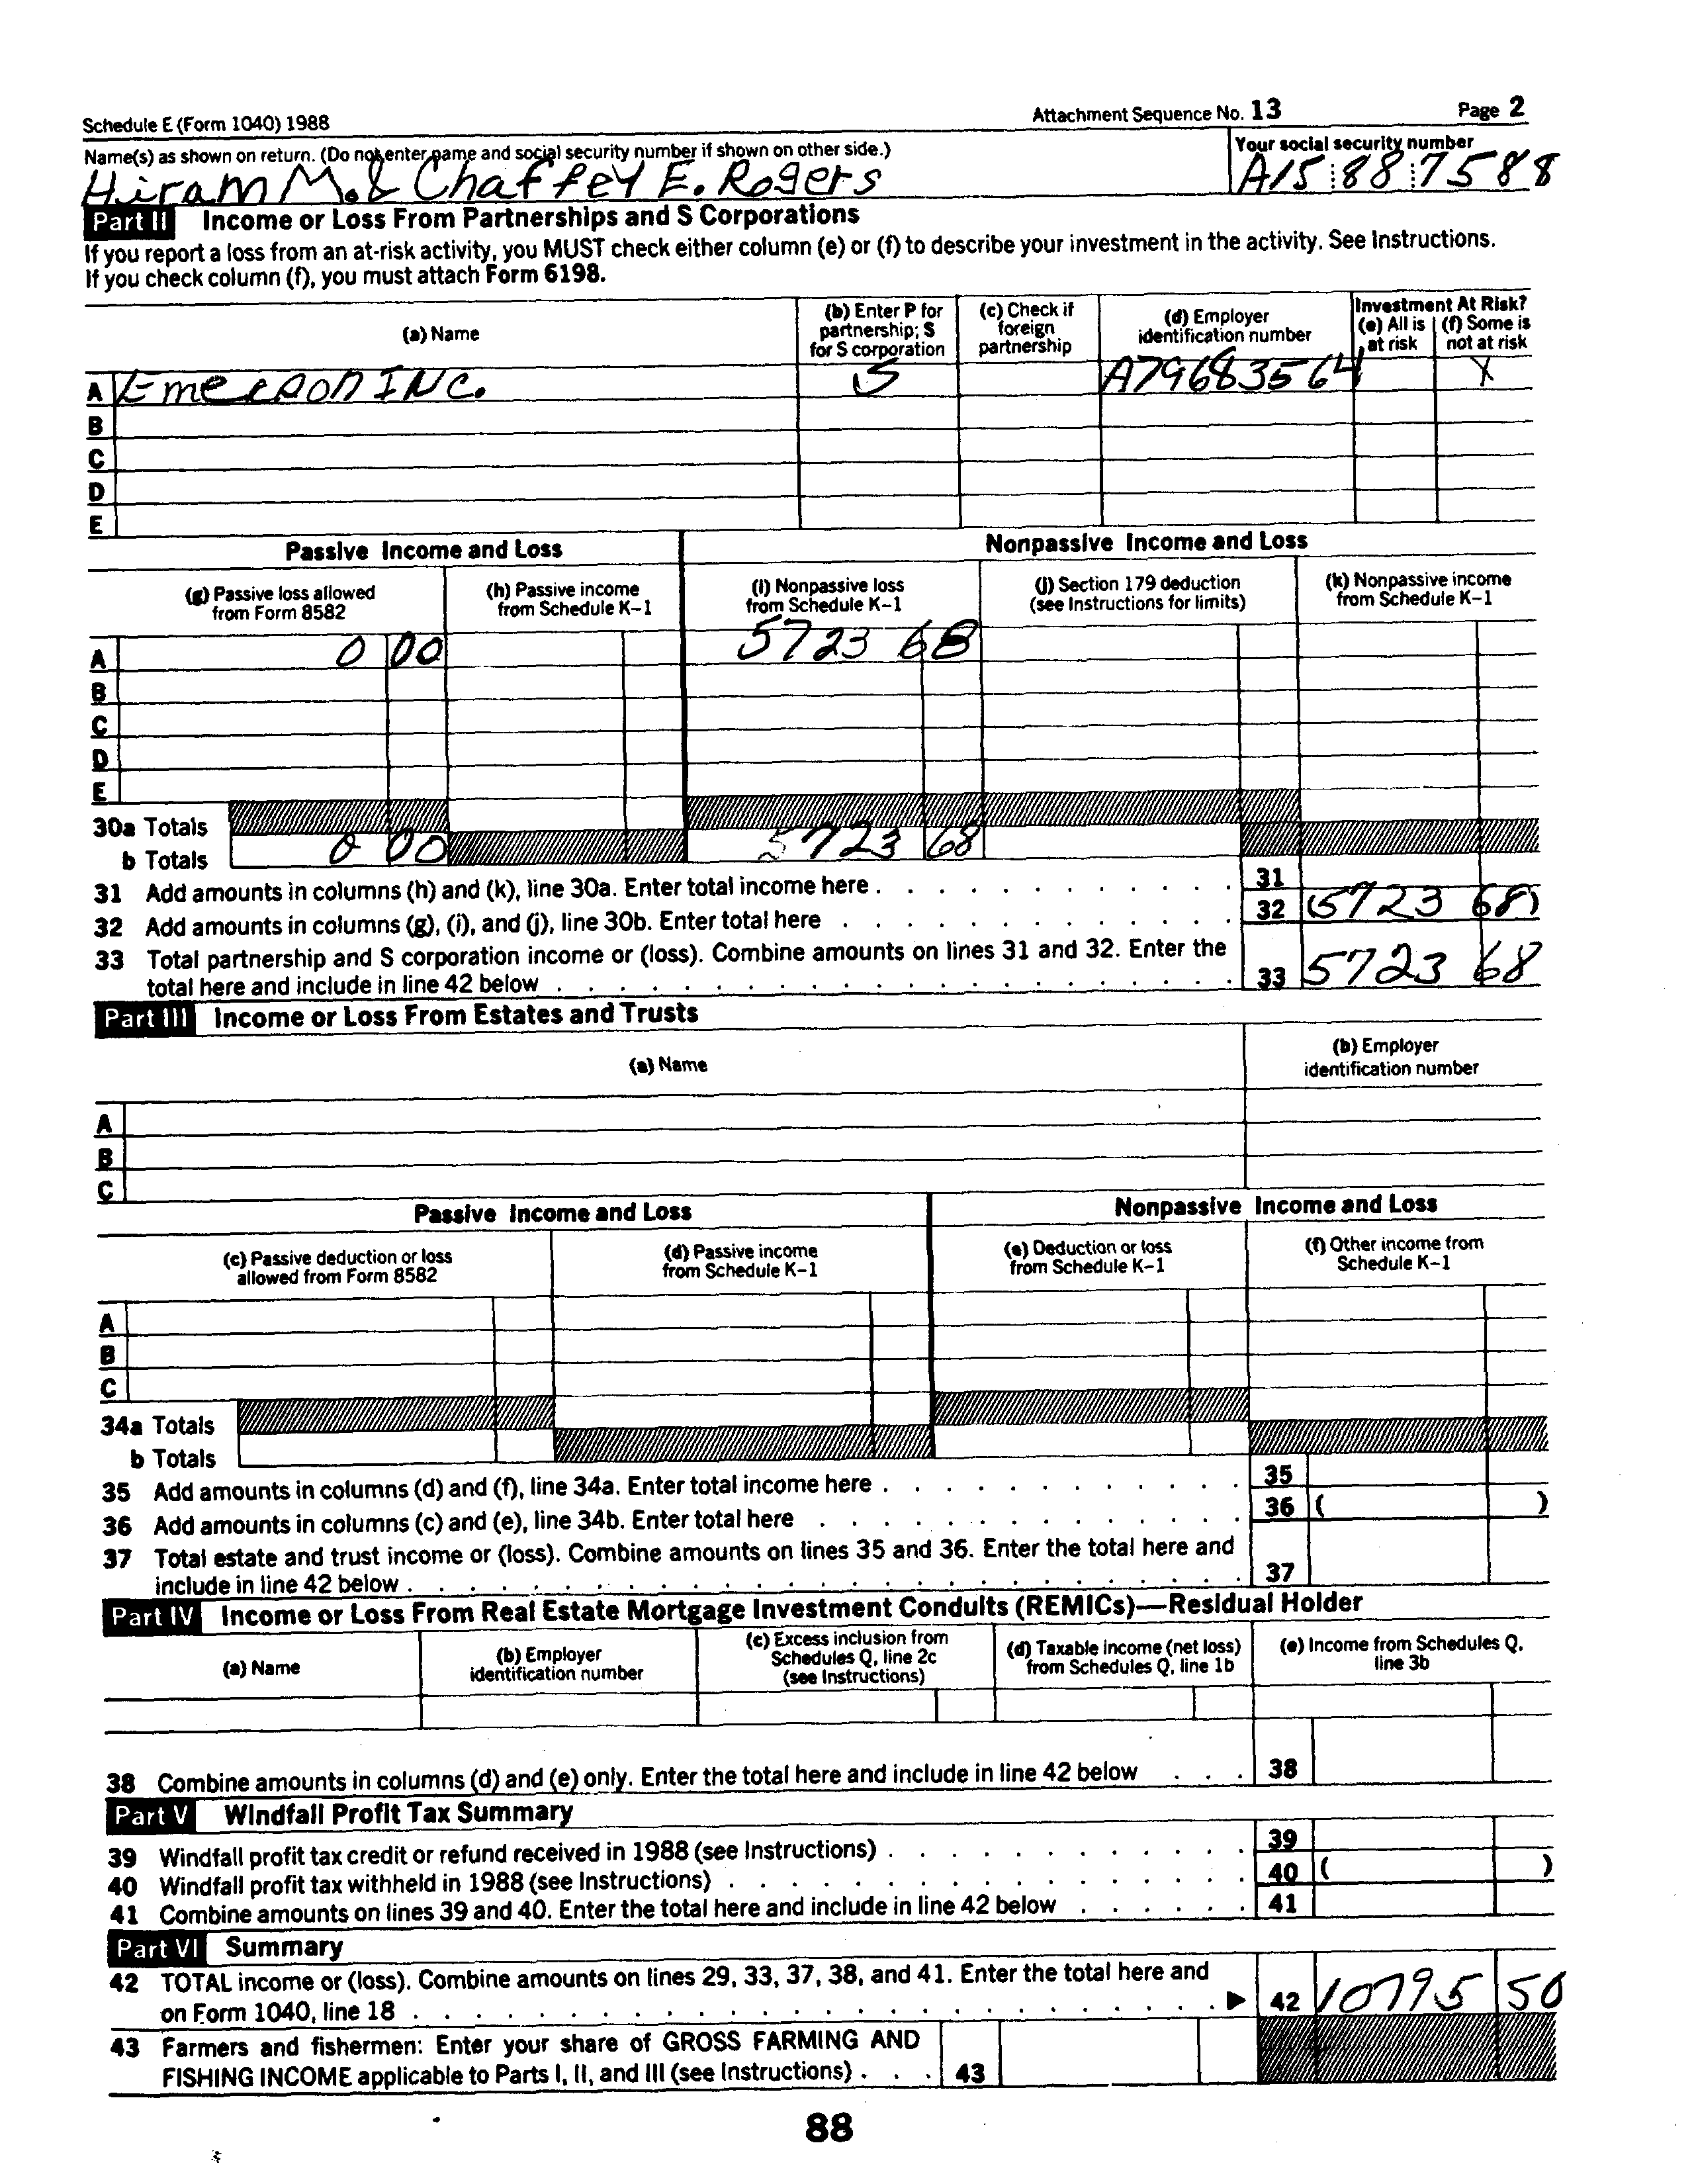 Schedule E (Form 1040) 1988 Attachment Sequence No. 13 Page 2
Name(s) as shown on return. (Do not enter name and social security number if shown on other side.) Your social security number
Hiram M. & Chaffey E. Rogers A15 88 7588
Part II Income or Loss From Partnerships and S Corporations
If you report a loss from an at-risk activity, you MUST check either column (e) or (f) to describe your investment in the activity. See Instructions.
If you check column (f), you must attach Form 6198.
(a) Name
(b) Enter P for partnership; S for S corporation
(c) Check if foreign partnership
(d) Employer identification number
Investment At Risk?
(e) All is at risk
(f) Some is not at risk
A Emerson INC. S A79683564 X
B
C
D
E
Passive Income and Loss Nonpassive Income and Loss
(g) Passive loss allowed from Form 8582
(h) Passive income from Schedule K-1
(i) Nonpassive loss from Schedule K-1
(j) Section 179 deduction (see Instructions for limits)
(k) Nonpassive income from Schedule K-1
A 0 00 5723 68
B
C
D
E
30a Totals
b Totals 0 00 5723 68
31 Add amounts in columns (h) and (k), line 30a. Enter total income here . . . . . . . . . . . . 31
32 Add amounts in columns (g), (i), and (j), line 30b. Enter total here . . . . . . . . . . . . . 32 (5723 68)
33 Total partnership and S corporation income or (loss). Combine amounts on lines 31 and 32. Enter the
total here and include in line 42 below . . . . . . . . . . . . . . . . . . . . . . 33 5723 68
Part III Income or Loss From Estates and Trusts
(a) Name
(b) Employer identification number
A
B
C
Passive Income and Loss Nonpassive Income and Loss
(c) Passive deduction or loss allowed from Form 8582
(d) Passive income from Schedule K-1
(e) Deduction or loss from Schedule K-1
(f) Other income from Schedule K-1
A
B
C
34a Totals
b Totals
35 Add amounts in columns (d) and (f), line 34a. Enter total income here . . . . . . . . . . . . 35
36 Add amounts in columns (c) and (e), line 34b. Enter total here . . . . . . . . . . . . . . 36 ( )
37 Total estate and trust income or (loss). Combine amounts on lines 35 and 36. Enter the total here and
include in line 42 below . . . . . . . . . . . . . . . . . . . . . . . . . . . 37
Part IV Income or Loss From Real Estate Mortgage Investment Conduits (REMICs)—Residual Holder
(a) Name
(b) Employer identification number
(c) Excess inclusion from Schedules Q, line 2c (see Instructions)
(d) Taxable income (net loss) from Schedules Q, line 1b
(e) Income from Schedules Q, line 3b
38 Combine amounts in columns (d) and (e) only. Enter the total here and include in line 42 below . . . 38
Part V Windfall Profit Tax Summary
39 Windfall profit tax credit or refund received in 1988 (see Instructions) . . . . . . . . . . . . 39
40 Windfall profit tax withheld in 1988 (see Instructions) . . . . . . . . . . . . . . . . . 40 ( )
41 Combine amounts on lines 39 and 40. Enter the total here and include in line 42 below . . . . . . 41
Part VI Summary
42 TOTAL income or (loss). Combine amounts on lines 29, 33, 37, 38, and 41. Enter the total here and
on Form 1040, line 18 . . . . . . . . . . . . . . . . . . . . . . . . . . ▶ 42 10795 50
43 Farmers and fishermen: Enter your share of GROSS FARMING AND
FISHING INCOME applicable to Parts I, II, and III (see Instructions) . . . 43
88